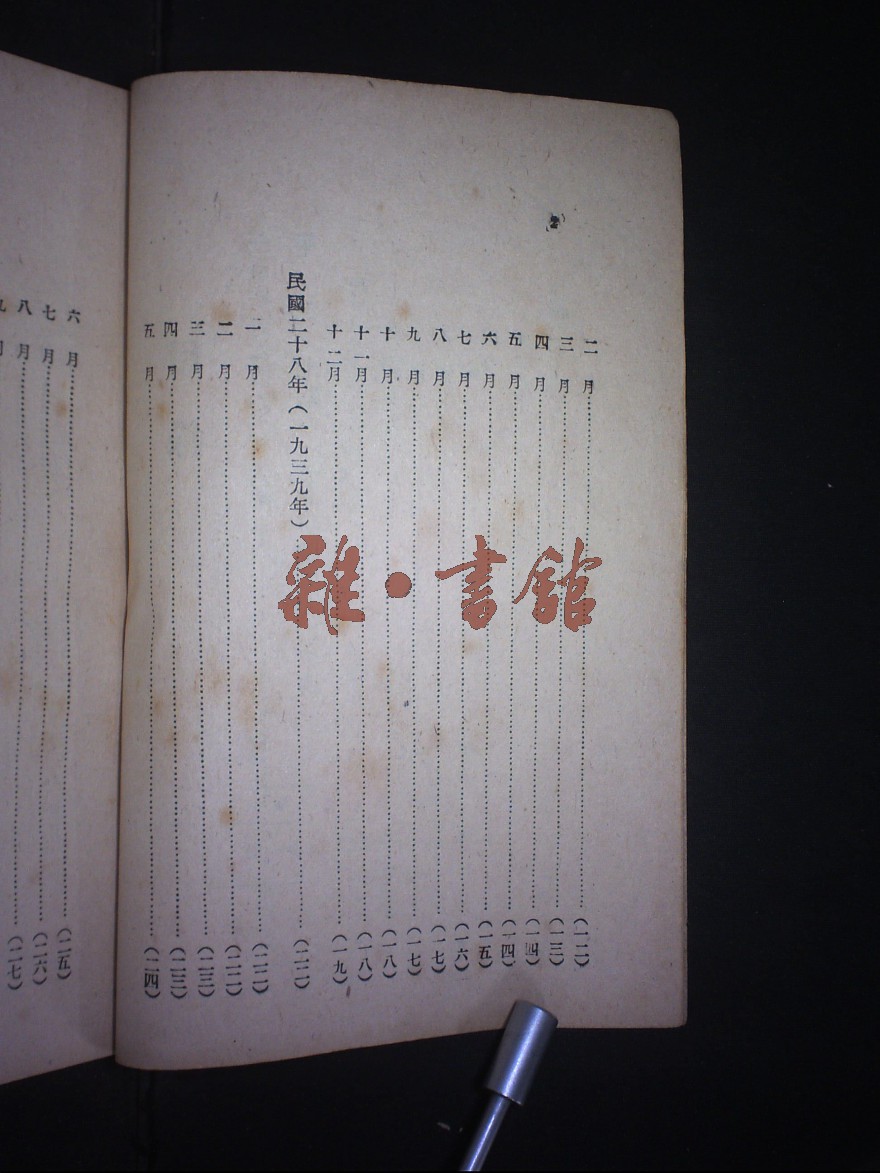 二月……(一二)
三月……(一三)
四月……(一四)
五月……(一四)
六月……(一五)
七月……(一六)
八月……(一七)
九月……(一七)
十月……(一八)
十一月……(一八)
十二月……(一九)
民國二十八年(一九三九年)……(二二)
一月……(二二)
二月……(二二)
三月……(二三)
四月……(二三)
五月……(二四)
六月……(二五)
七月……(二六)
八月……(二七)
雜·書館